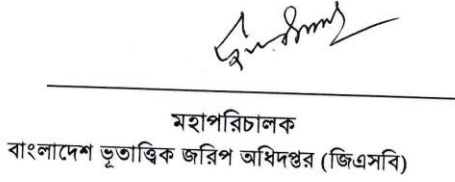 মহাপরিচালক
বাংলাদেশ ভূতাত্ত্বিক জরিপ অধিদপ্তর (জিএসবি)